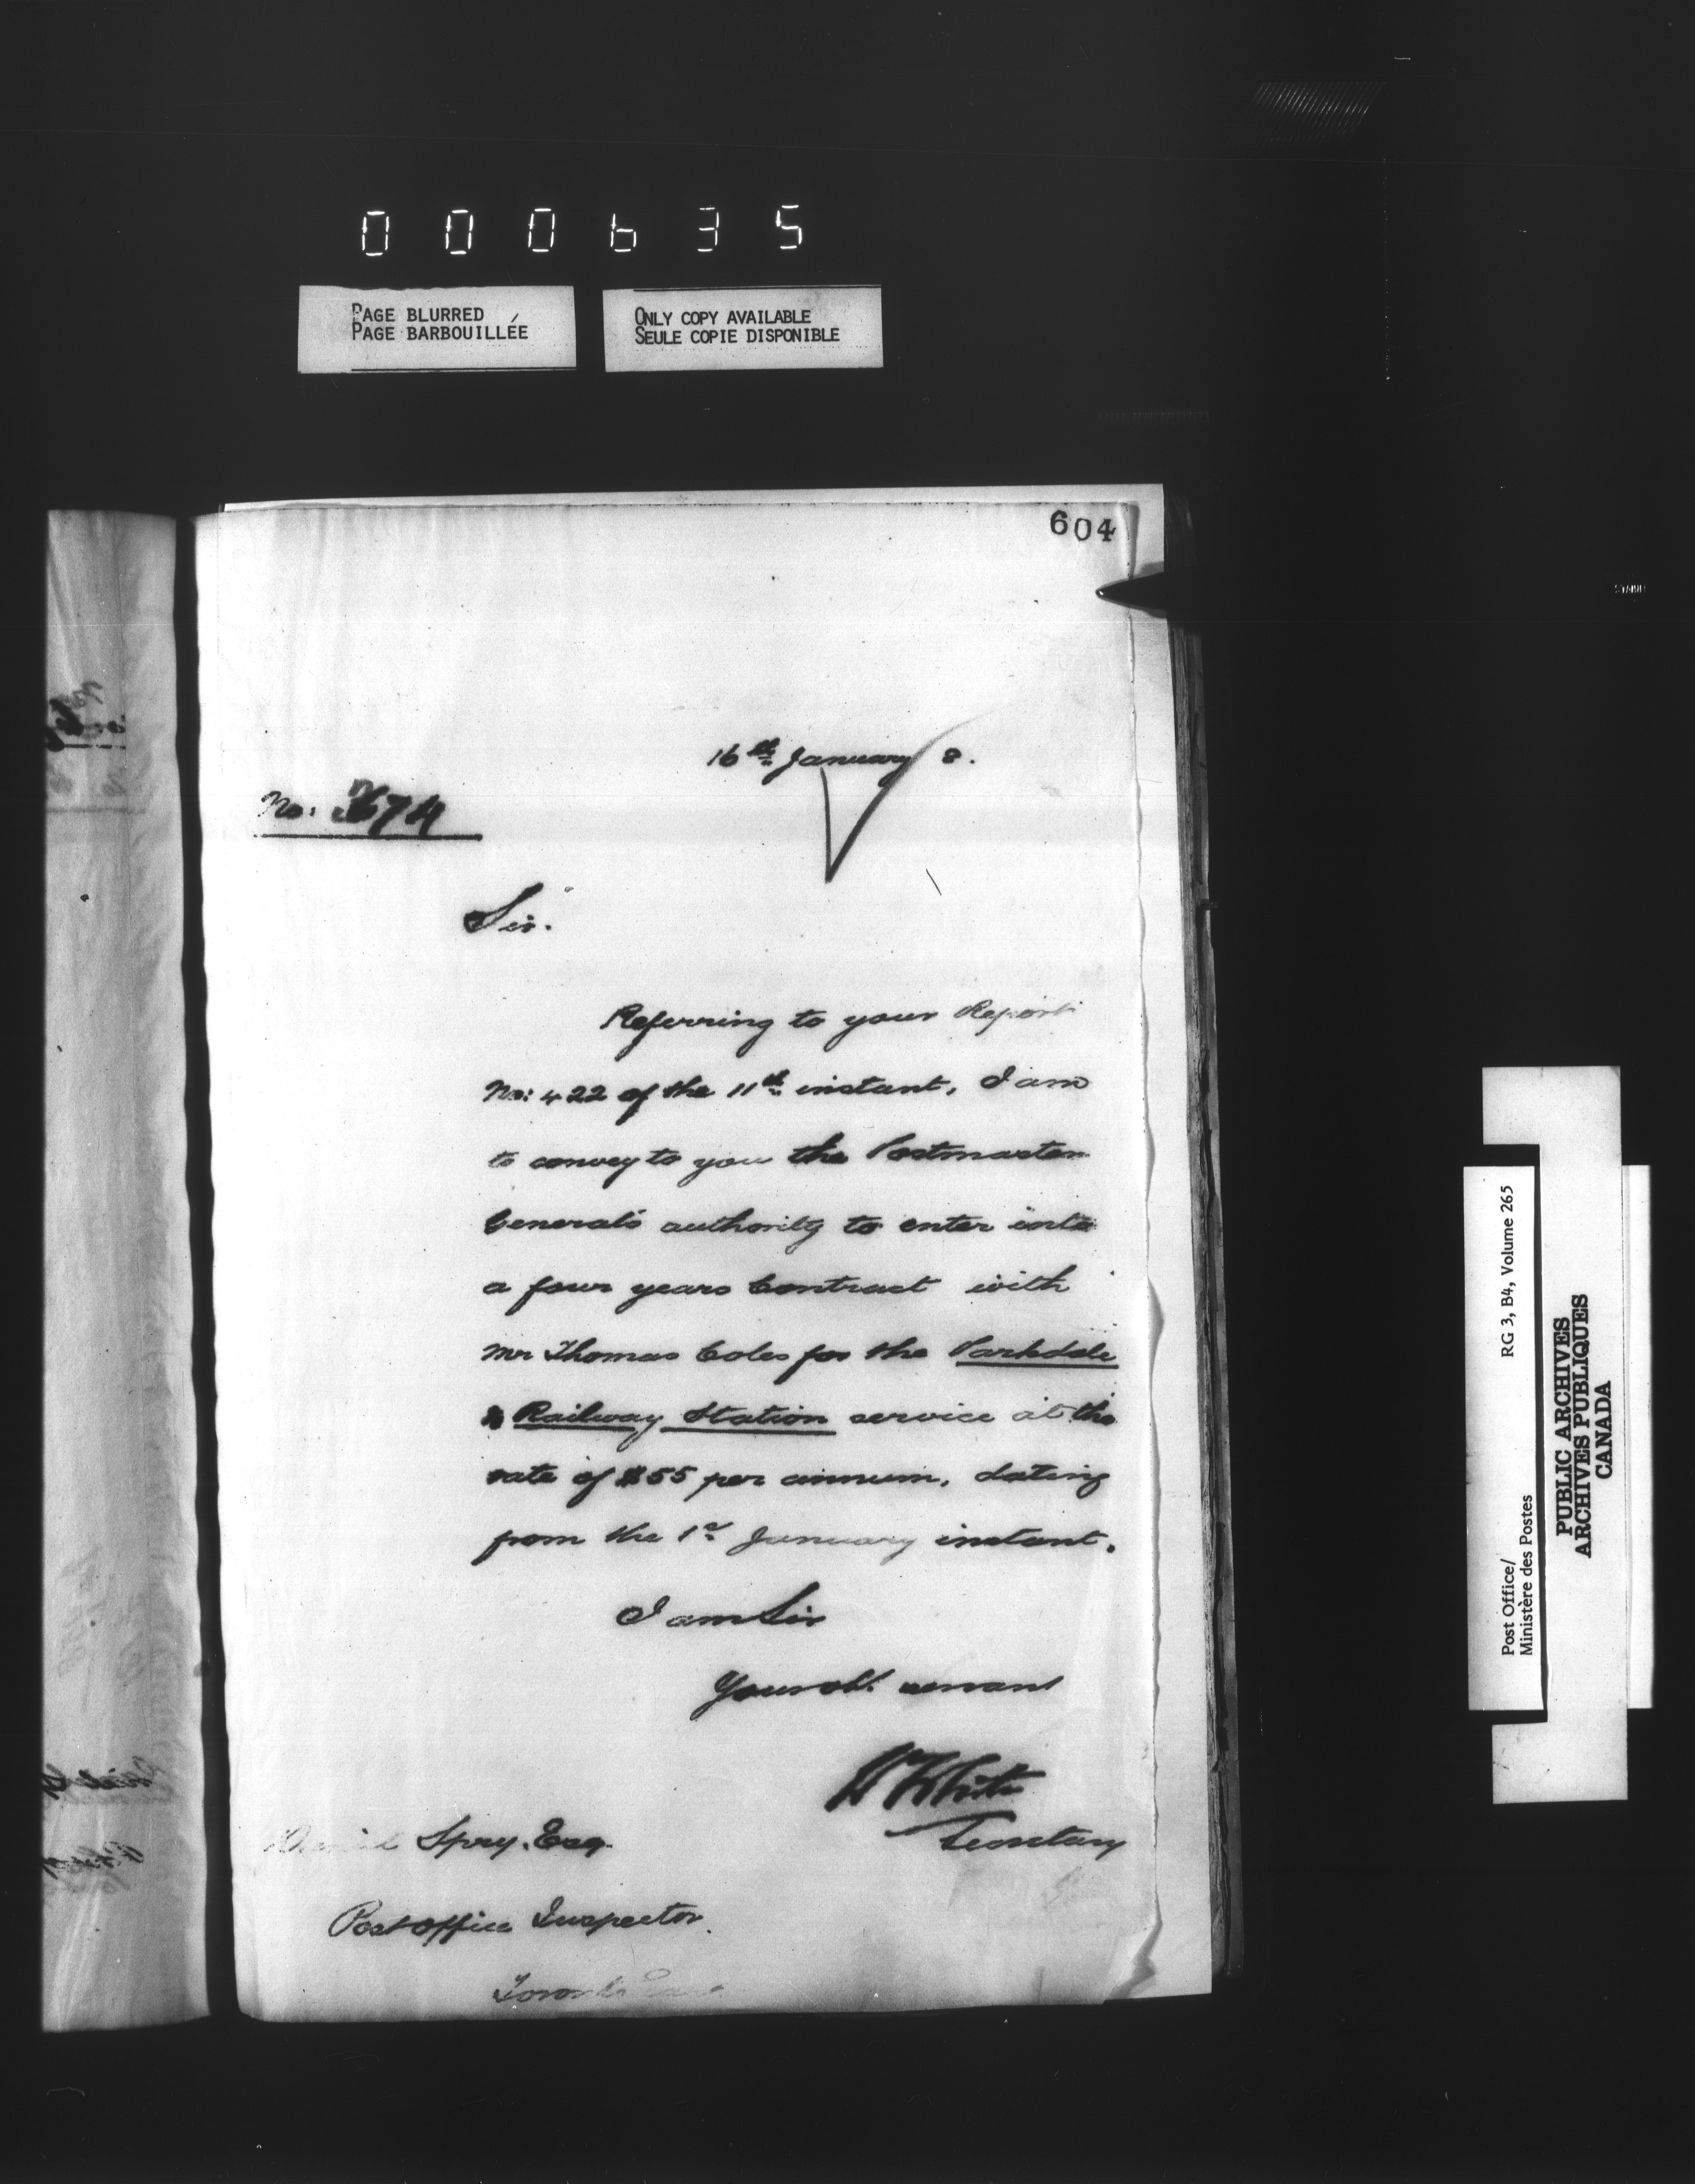 000635
PAGE BLURRED
PAGE BARBOUILLÉE
ONLY COPY AVAILABLE
SEULE COPIE DISPONIBLE
604
16th January 8.
No: 674
Sir.
Referring to your Report
No: 422 of the 11th instant, I am
to convey to you the Postmaster
General's authority to enter into
a four years Contract with
Mr Thomas Coles for the Parkdale
& Railway Station service at the
rate of $55 per annum, dating
from the 1st January instant.
I am Sir
Your obt. servant
W White
Secretary
Daniel Spry, Esq.
Post Office Inspector.
Toronto
RG 3, B4, Volume 265
Post Office/
Ministère des Postes
PUBLIC ARCHIVES
ARCHIVES PUBLIQUES
CANADA